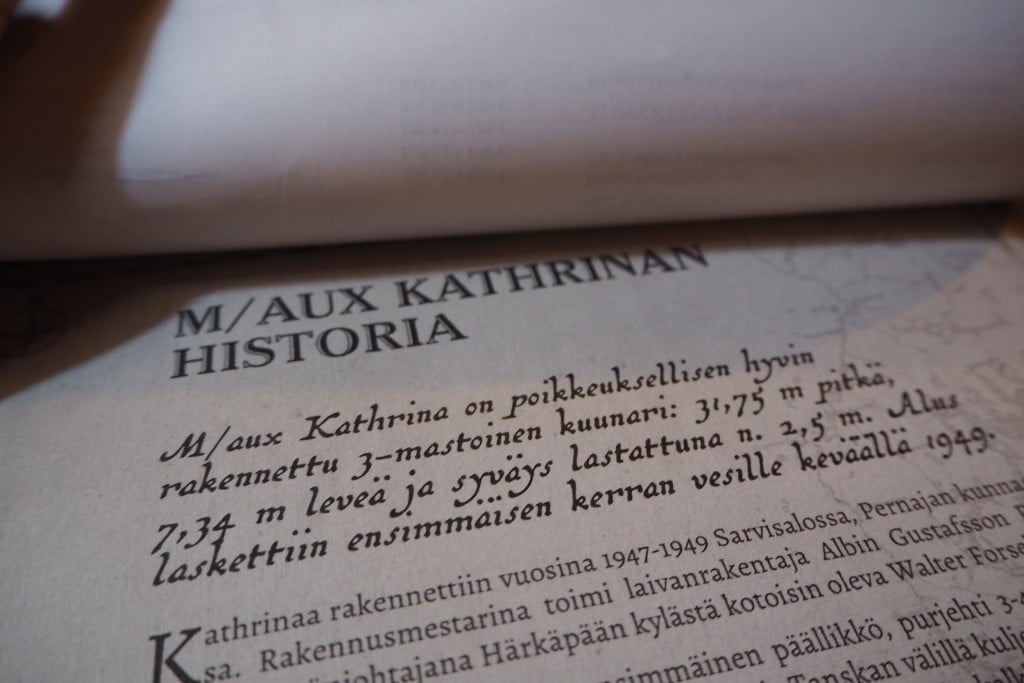 M/AUX KATHRINAN
HISTORIA
M/aux Kathrina on poikkeuksellisen hyvin
rakennettu 3-mastoinen kuunari: 31,75 m pitkä,
7,34 m leveä ja syväys lastattuna n. 2,5 m. Alus
laskettiin ensimmäisen kerran vesille keväällä 1949.
Kathrinaa rakennettiin vuosina 1947-1949 Sarvisalossa, Pernajan kunnas
sa. Rakennusmestarina toimi laivanrakentaja Albin Gustafsson
johtajana Härkäpään kylästä kotoisin oleva Walter Forse
simmäinen päällikkö, purjehti 3-
Tanskan välillä kulje